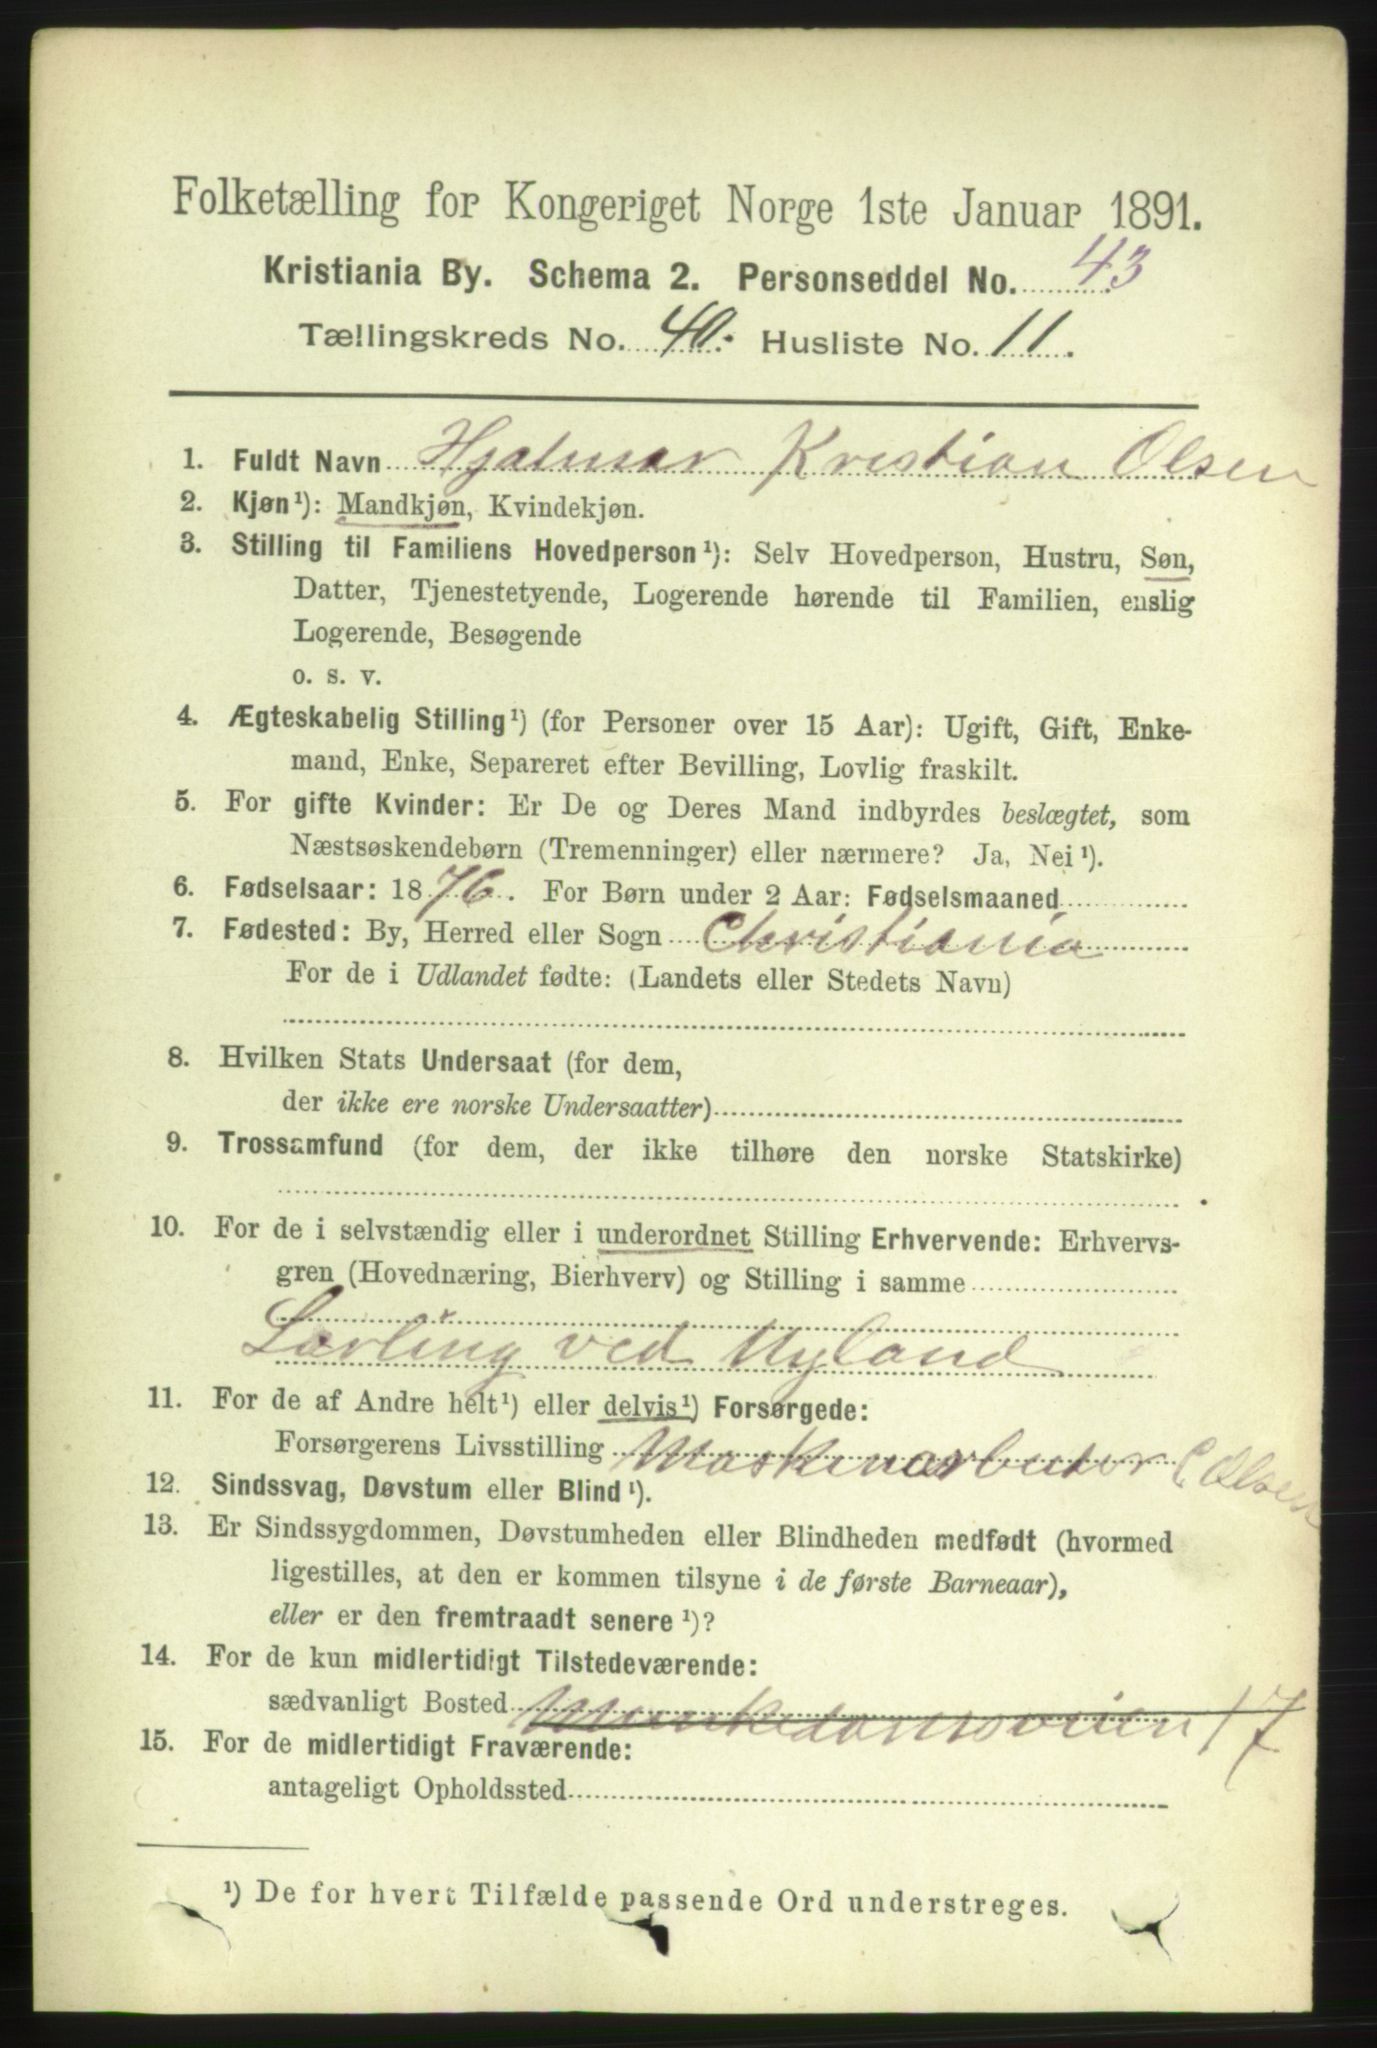 Folketælling for Kongeriget Norge 1ste Januar 1891.
Kristiania By. Schema 2. Personseddel No. 43
Tællingskreds No. 40. Husliste No. 11.
1. Fuldt Navn Hjalmar Kristian Olsen
2. Kjøn¹): Mandkjøn, Kvindekjøn.
3. Stilling til Familiens Hovedperson¹): Selv Hovedperson, Hustru, Søn,
Datter, Tjenestetyende, Logerende hørende til Familien, enslig
Logerende, Besøgende
o. s. v.
4. Ægteskabelig Stilling¹) (for Personer over 15 Aar): Ugift, Gift, Enke-
mand, Enke, Separeret efter Bevilling, Lovlig fraskilt.
5. For gifte Kvinder: Er De og Deres Mand indbyrdes beslægtet, som
Næstsøskendebørn (Tremenninger) eller nærmere? Ja, Nei¹).
6. Fødselsaar: 1876. For Børn under 2 Aar: Fødselsmaaned
7. Fødested: By, Herred eller Sogn Christiania
For de i Udlandet fødte: (Landets eller Stedets Navn)
8. Hvilken Stats Undersaat (for dem,
der ikke ere norske Undersaatter)
9. Trossamfund (for dem, der ikke tilhøre den norske Statskirke)
10. For de i selvstændig eller i underordnet Stilling Erhvervende: Erhvervs-
gren (Hovednæring, Bierhverv) og Stilling i samme
Lærling ved Nyland
11. For de af Andre helt¹) eller delvis¹) Forsørgede:
Forsørgerens Livsstilling Maskinarbeider C Olsen
12. Sindssvag, Døvstum eller Blind¹).
13. Er Sindssygdommen, Døvstumheden eller Blindheden medfødt (hvormed
ligestilles, at den er kommen tilsyne i de første Barneaar),
eller er den fremtraadt senere¹)?
14. For de kun midlertidigt Tilstedeværende:
sædvanligt Bosted Munkedamsveien 17
15. For de midlertidigt Fraværende:
antageligt Opholdssted
¹) De for hvert Tilfælde passende Ord understreges.